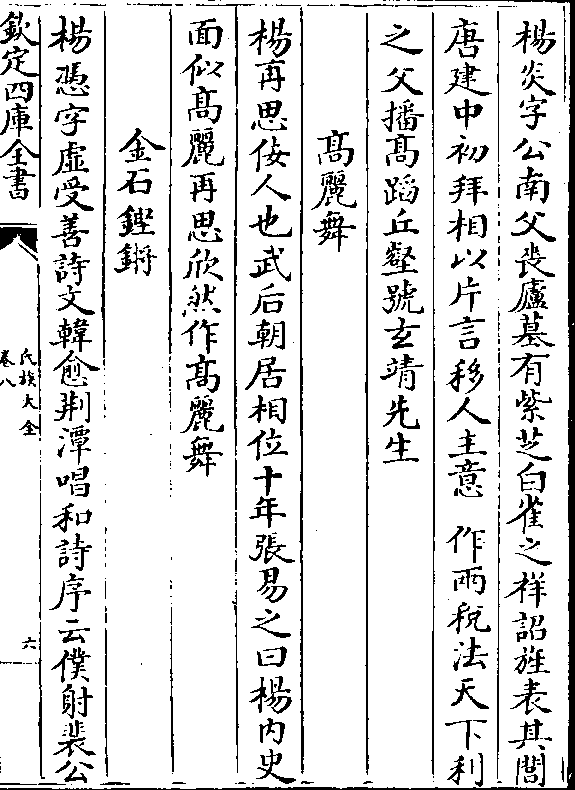 楊炎字公南父喪廬墓有紫芝白雀之祥詔旌表其閭
唐建中初拜相以片言移人主意 作兩稅法天下利
之父播髙蹈丘壑號玄靖先生
髙麗舞
楊再思佞人也武后朝居相位十年張易之曰楊内史
面似髙麗再思欣然作髙麗舞
金石鏗鏘
楊憑字虚受善詩文韓愈荆潭唱和詩序云僕射裴公
欽定四庫全書
氏族大全
卷八
六